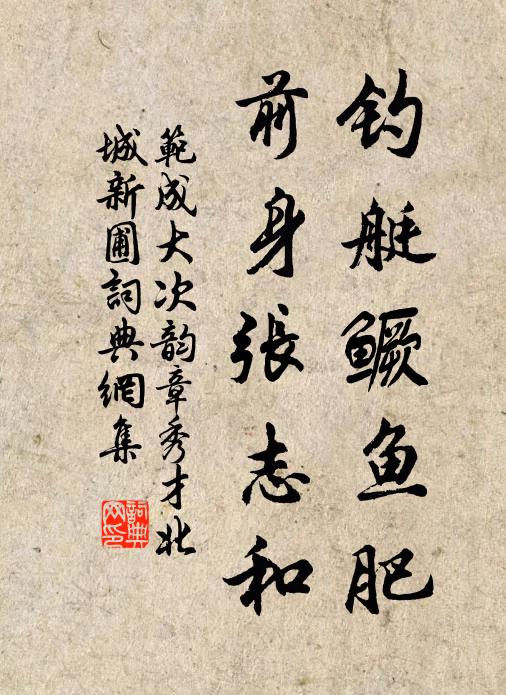 钓艇鳜鱼肥
前身張志和
範成大次韵章秀才北
城新圃詞典網集
詞典
网印